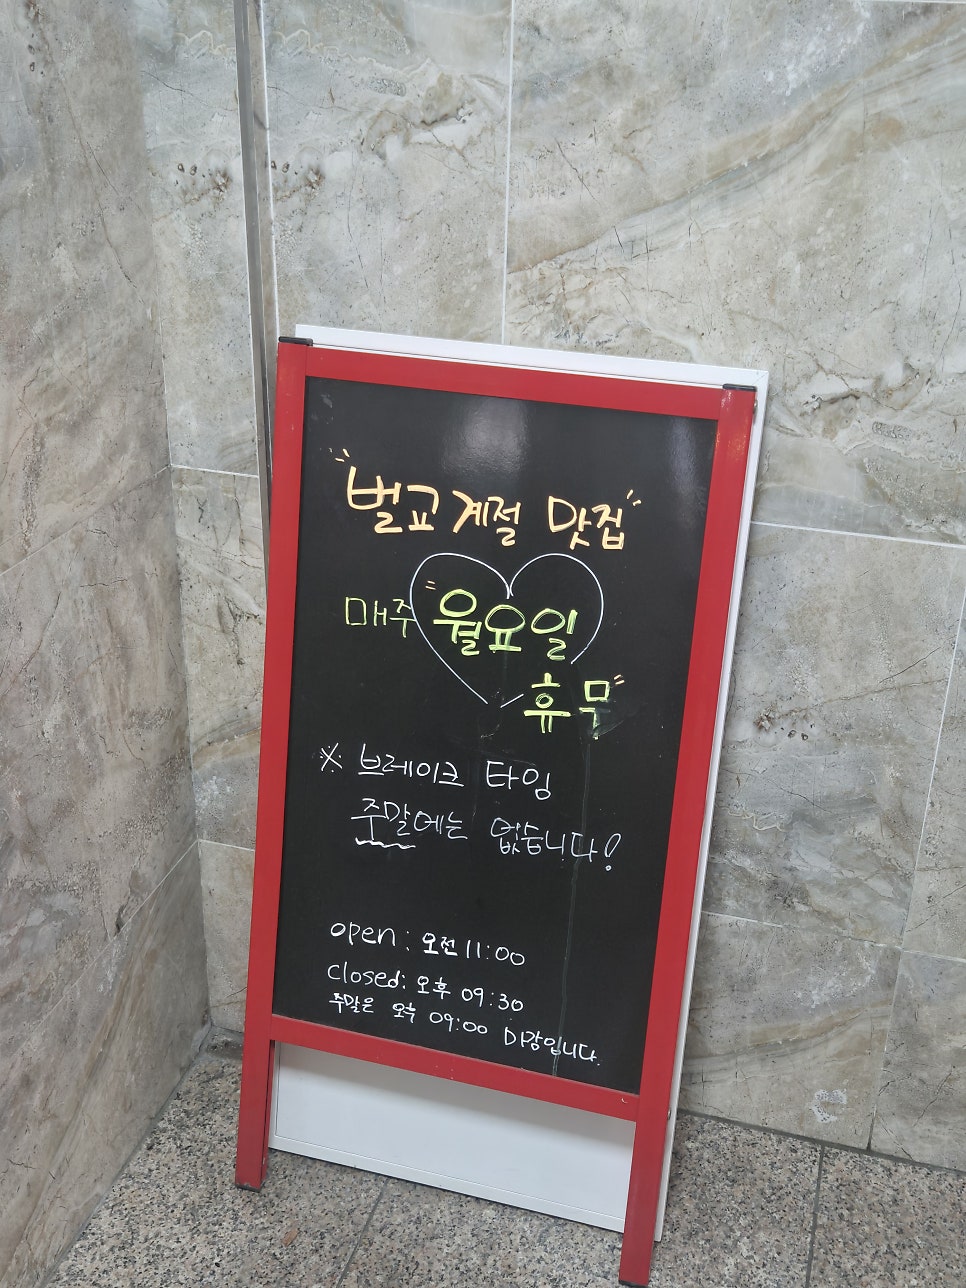 "벌교 계절 맛집"
매주 "월요일
휴무"
※ 브레이크 타임
주말에는 없습니다!
open: 오전 11:00
closed: 오후 09:30
주말은 오후 09:00 마감입니다.